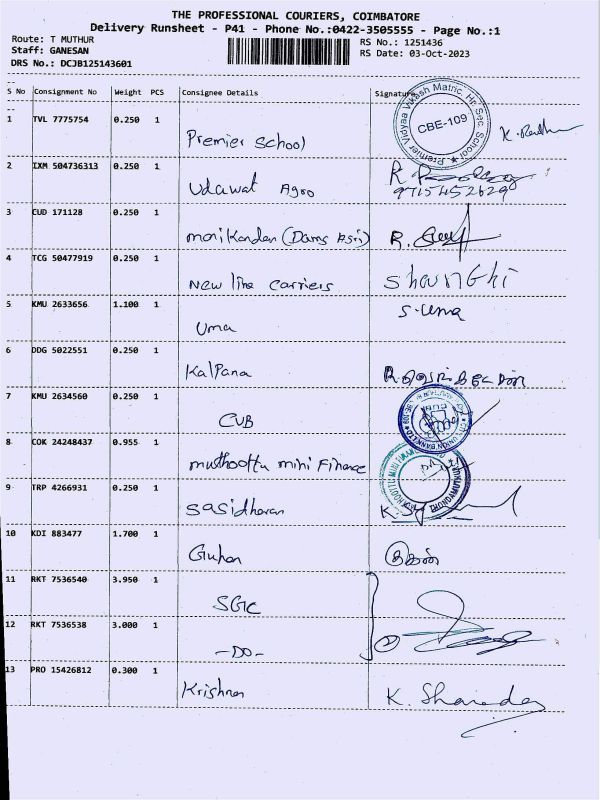 THE PROFESSIONAL COURIERS, COIMBATORE
Delivery Runsheet - P41 - Phone No.:0422-3505555 - Page No.:1
Route: T MUTHUR RS No.: 1251436
Staff: GANESAN RS Date: 03-Oct-2023
DRS No.: DCJB125143601
S No Consignment No Weight PCS Consignee Details Signature
1 TVL 7775754 0.250 1 Premier School
Premier Vidyaa Vikash Matric. Hr. Sec. School
CBE-109
2 IXM 504736313 0.250 1 Udawat Agro
9715452629
3 CUD 171128 0.250 1 manikandan (Dams Asri) R.
4 TCG 50477919 0.250 1 New line carriers
5 KMU 2633656 1.100 1 Uma S. Uma
6 DDG 5022551 0.250 1 Kalpana
7 KMU 2634560 0.250 1 CUB
8 COK 24248437 0.955 1 muthoottu mini Finance
9 TRP 4266931 0.250 1 Sasidharan
10 KDI 883477 1.700 1 Guhan குகன்
11 RKT 7536540 3.950 1 SGC
12 RKT 7536538 3.000 1 -DO-
13 PRO 15426812 0.300 1 Krishnan K.